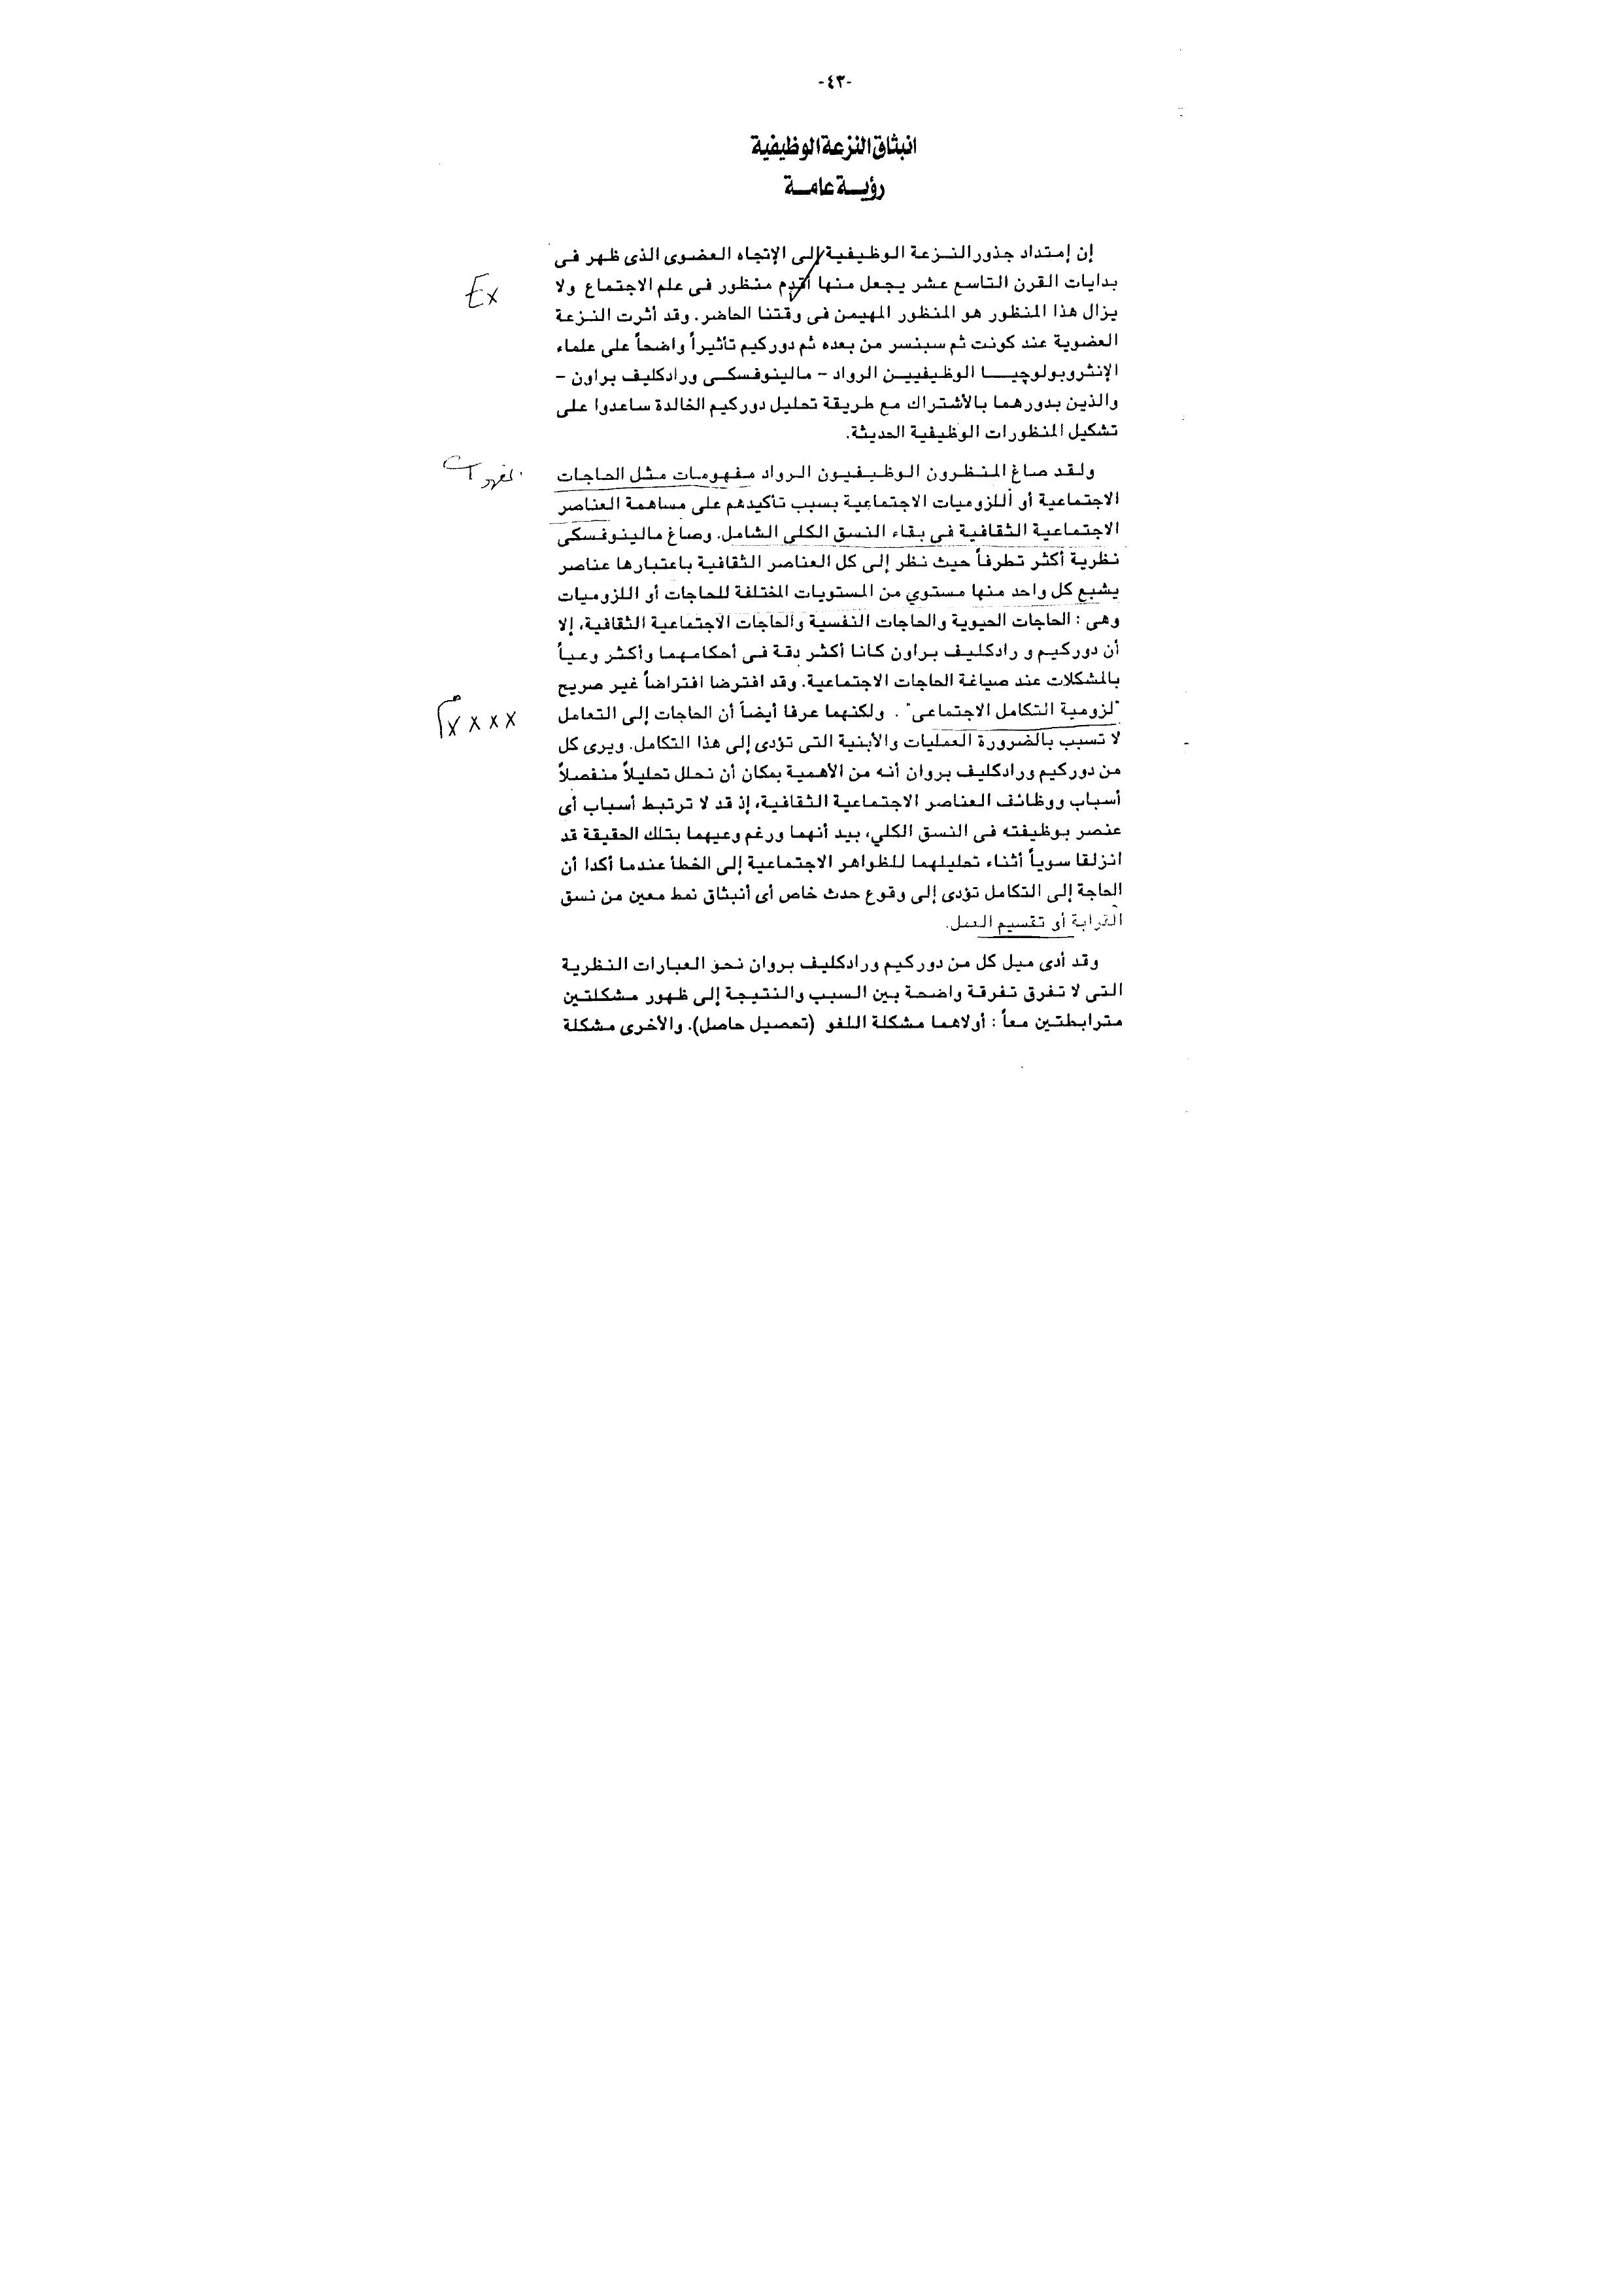 -٤٣-
انبثاق النزعة الوظيفية
رؤيـــة عامـــة
إن إمتداد جذور النـزعة الوظيفية إلى الإتجاه العضوى الذى ظهر فى
بدايات القرن التاسع عشر يجعل منها أقدم منظور فى علم الاجتماع ولا
يزال هذا المنظور هو المنظور المهيمن فى وقتنا الحاضر. وقد أثرت النـزعة
العضوية عند كونت ثم سبنسر من بعده ثم دوركيم تأثيراً واضحاً على علماء
الإنثروبولوچيـــا الوظيفييـن الرواد - مالينوفسكـى ورادكليف براون -
والذين بدورهما بالأشتراك مع طريقة تحليل دوركيم الخالدة ساعدوا على
تشكيل المنظورات الوظيفية الحديثة.
ولقد صاغ المنظرون الوظيفيون الرواد مفهومات مثل الحاجات
الاجتماعية أو اللزوميات الاجتماعية بسبب تأكيدهم على مساهمة العناصر
الاجتماعية الثقافية فى بقاء النسق الكلى الشامل. وصاغ مالينوفسكى
نظرية أكثر تطرفاً حيث نظر إلى كل العناصر الثقافية باعتبارها عناصر
يشبع كل واحد منها مستوي من المستويات المختلفة للحاجات أو اللزوميات
وهى : الحاجات الحيوية والحاجات النفسية والحاجات الاجتماعية الثقافية، إلا
أن دوركيم و رادكليف براون كانا أكثر دقة فى أحكامهما وأكثر وعياً
بالمشكلات عند صياغة الحاجات الاجتماعية. وقد افترضا افتراضاً غير صريح
"لزومية التكامل الاجتماعى" . ولكنهما عرفا أيضاً أن الحاجات إلى التعامل
لا تسبب بالضرورة العمليات والأبنية التى تؤدى إلى هذا التكامل. ويرى كل
من دوركيم ورادكليف بروان أنه من الأهمية بمكان أن نحلل تحليلاً منفصلاً
أسباب ووظائف العناصر الاجتماعية الثقافية، إذ قد لا ترتبط أسباب أى
عنصر بوظيفته فى النسق الكلي، بيد أنهما ورغم وعيهما بتلك الحقيقة قد
انزلقا سوياً أثناء تحليلهما للظواهر الاجتماعية إلى الخطأ عندما أكدا أن
الحاجة إلى التكامل تؤدى إلى وقوع حدث خاص أى أنبثاق نمط معين من نسق
القرابة أو تقسيم العمل.
وقد أدى ميل كل من دوركيم ورادكليف بروان نحو العبارات النظرية
التى لا تفرق تفرقة واضحة بين السبب والنتيجة إلى ظهور مشكلتين
مترابطتين معاً : أولاهما مشكلة اللغو (تحصيل حاصل). والأخرى مشكلة
Ex
x x x x